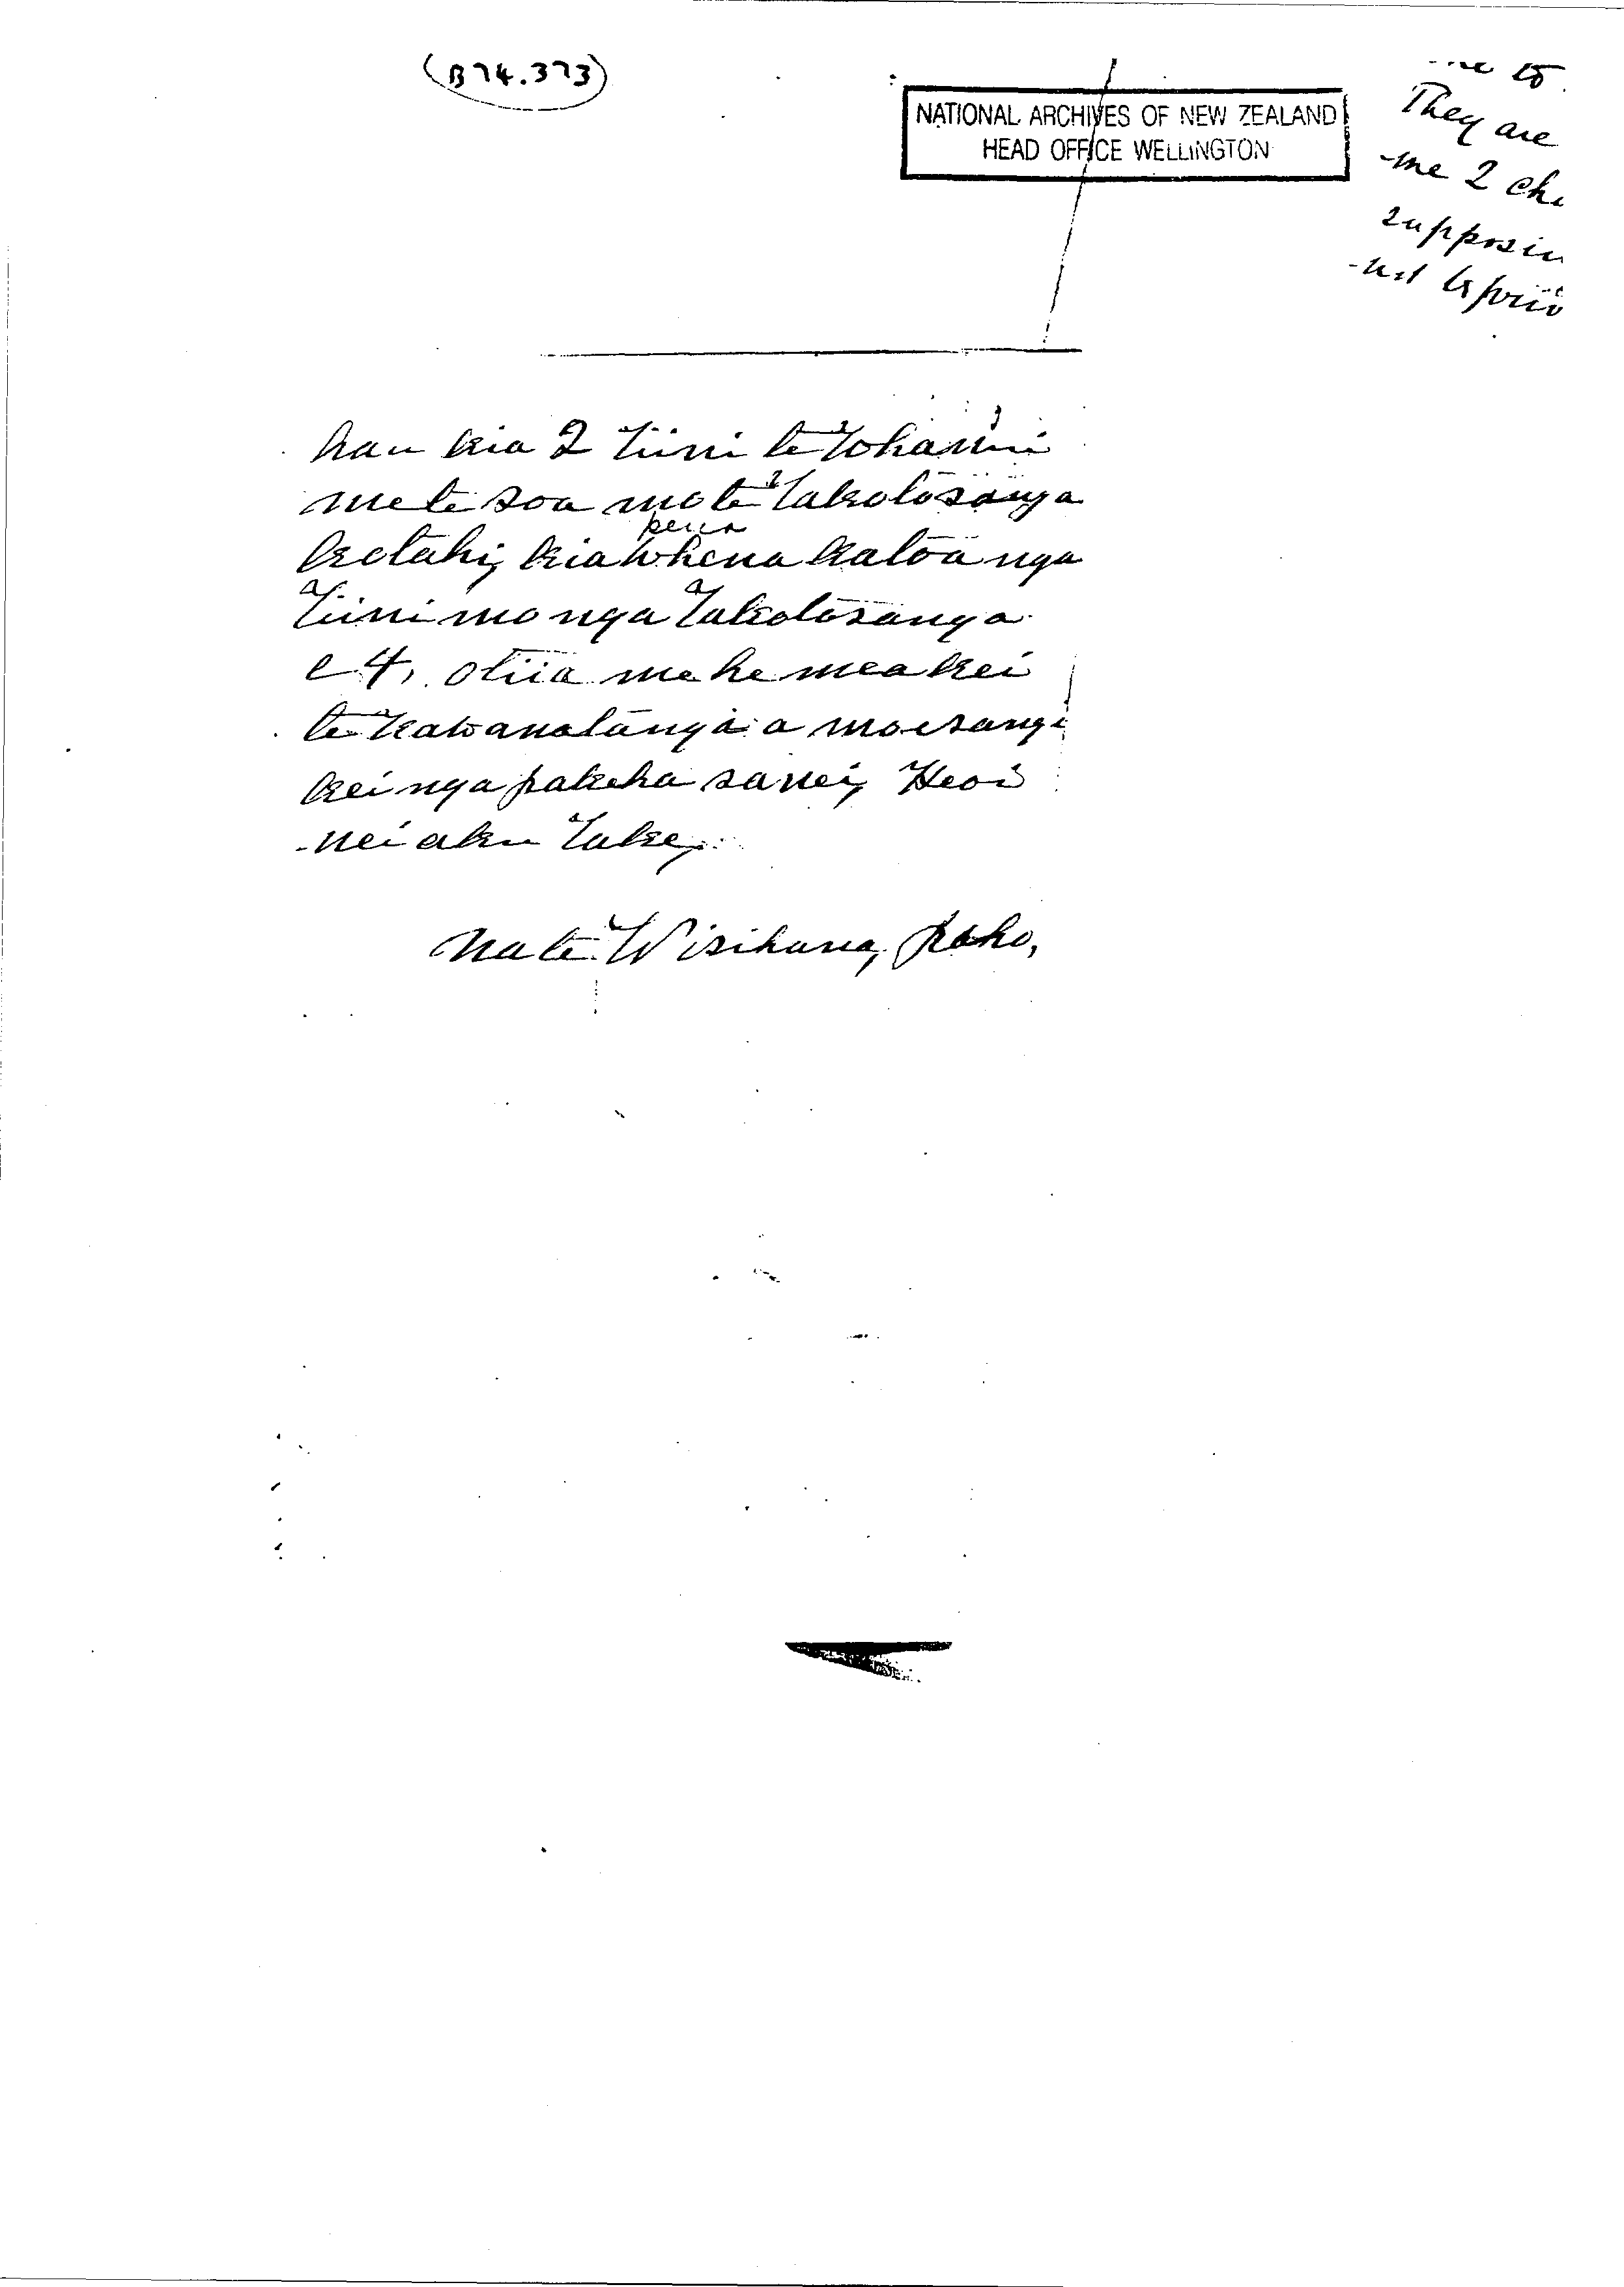 (B74.373)
NATIONAL ARCHIVES OF NEW ZEALAND
HEAD OFFICE WELLINGTON
They are
me 2 ch
supposin
hau kia 2 Tiini te roharuii
me te roa mo te Takotoranga
kotahi, kia whena katoa nga
pena
Tiini mo nga Takotoranga
e 4, otiia me he mea kei
te Kawanatanga a moerangi
kei nga pakeha ranei, Heoi
nei aku Take,
Na te Wirihana, Roho,